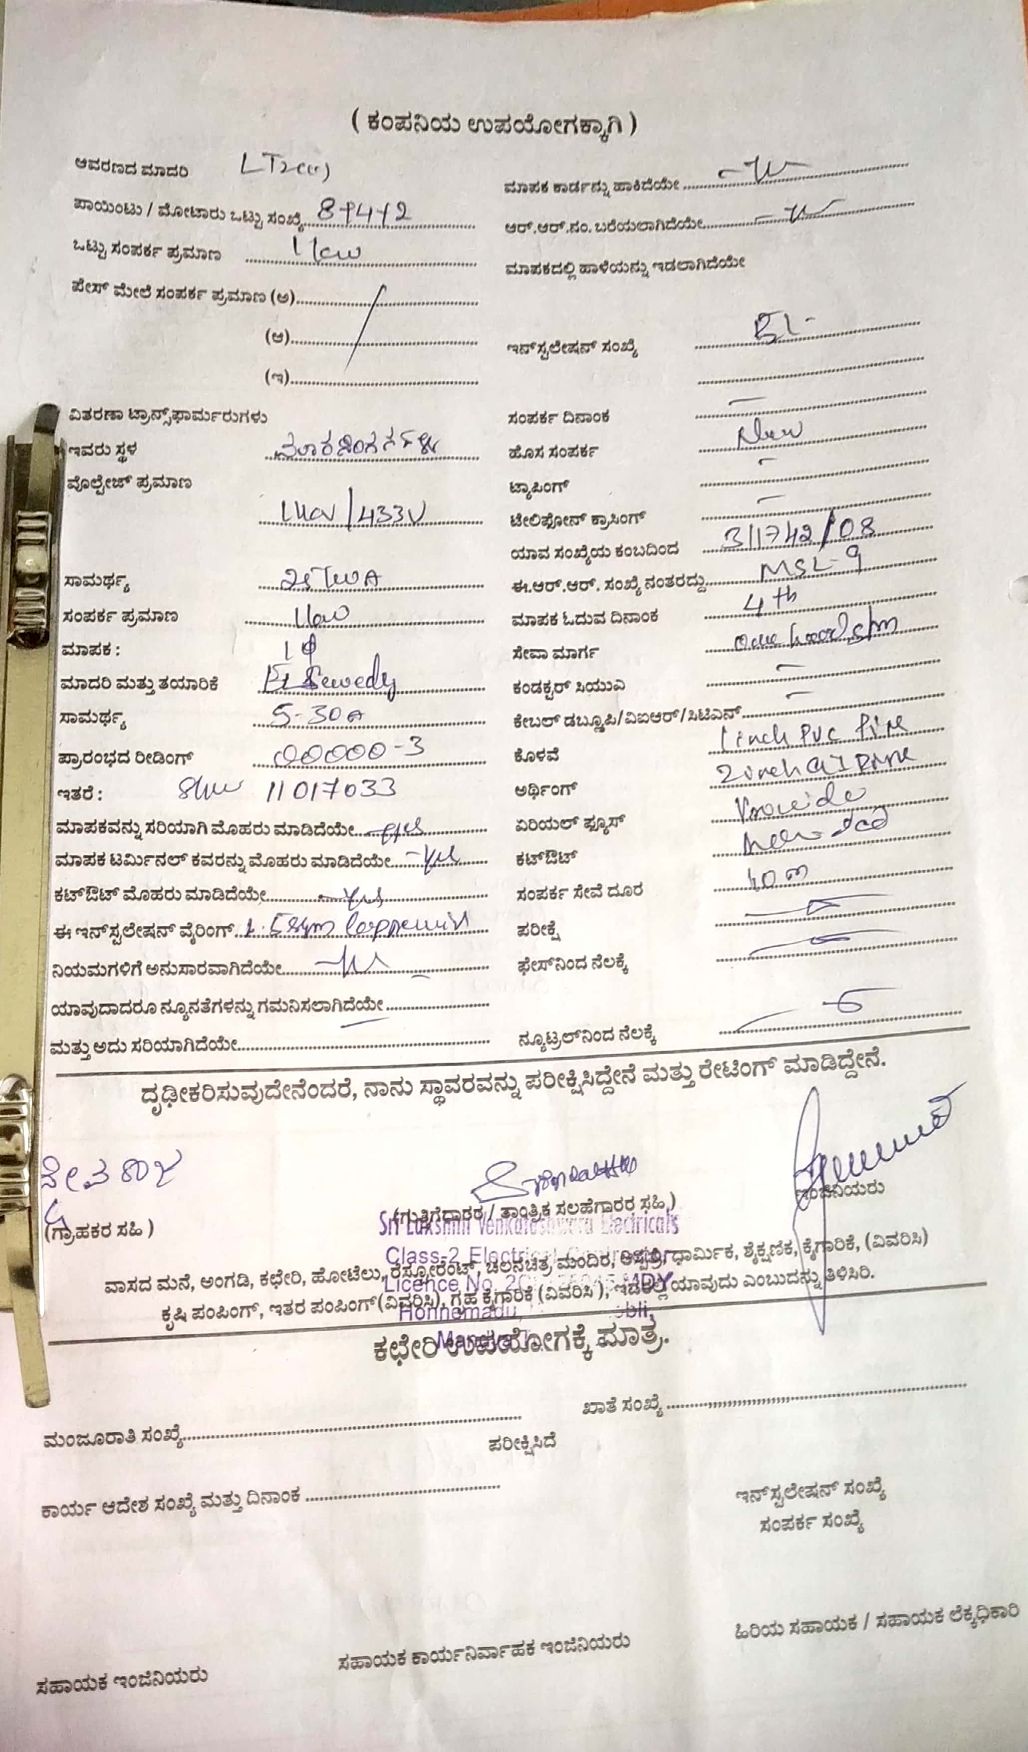 ( ಕಂಪನಿಯ ಉಪಯೋಗಕ್ಕಾಗಿ )
ಆವರಣದ ಮಾದರಿ LT2(a)
ಮಾಪಕ ಕಾರ್ಡನ್ನು ಹಾಕಿದೆಯೇ
ಪಾಯಿಂಟು / ಮೋಟಾರು ಒಟ್ಟು ಸಂಖ್ಯೆ
ಆರ್.ಆರ್.ನಂ. ಬರೆಯಲಾಗಿದೆಯೇ
ಒಟ್ಟು ಸಂಪರ್ಕ ಪ್ರಮಾಣ 1kw
ಮಾಪಕದಲ್ಲಿ ಹಾಳೆಯನ್ನು ಇಡಲಾಗಿದೆಯೇ
ಪೇಸ್ ಮೇಲೆ ಸಂಪರ್ಕ ಪ್ರಮಾಣ (ಅ)
(ಆ)
ಇನ್‌ಸ್ಟಲೇಷನ್ ಸಂಖ್ಯೆ
(ಇ)
ವಿತರಣಾ ಟ್ರಾನ್ಸ್‌ಫಾರ್ಮರುಗಳು
ಸಂಪರ್ಕ ದಿನಾಂಕ -
ಇವರು ಸ್ಥಳ
ಹೊಸ ಸಂಪರ್ಕ New
ವೊಲ್ಟೇಜ್ ಪ್ರಮಾಣ 11kv/433V
ಟ್ಯಾಪಿಂಗ್ -
ಟೇಲಿಫೋನ್ ಕ್ರಾಸಿಂಗ್ -
ಯಾವ ಸಂಖ್ಯೆಯ ಕಂಬದಿಂದ 311742/08
ಸಾಮರ್ಥ್ಯ 25KVA
ಈ.ಆರ್.ಆರ್. ಸಂಖ್ಯೆ ನಂತರದ್ದು MSL-9
ಸಂಪರ್ಕ ಪ್ರಮಾಣ 1kw
ಮಾಪಕ ಓದುವ ದಿನಾಂಕ 4th
ಮಾಪಕ : 1φ
ಸೇವಾ ಮಾರ್ಗ
ಮಾದರಿ ಮತ್ತು ತಯಾರಿಕೆ El Sewedy
ಕಂಡಕ್ಟರ್ ಸಿಯುಎ -
ಸಾಮರ್ಥ್ಯ 5-30A
ಕೇಬಲ್ ಡಬ್ಲೂಪಿ/ವಿಐಆರ್/ಸಿಟಿಎನ್ -
ಪ್ರಾರಂಭದ ರೀಡಿಂಗ್ 00000-3
ಕೊಳವೆ 1 inch PVC Pipe
ಇತರೆ : 11017033
ಅರ್ಥಿಂಗ್ 2 inch GI Pipe
ಮಾಪಕವನ್ನು ಸರಿಯಾಗಿ ಮೊಹರು ಮಾಡಿದೆಯೇ yes
ಏರಿಯಲ್ ಫ್ಯೂಸ್ Provide
ಮಾಪಕ ಟರ್ಮಿನಲ್ ಕವರನ್ನು ಮೊಹರು ಮಾಡಿದೆಯೇ -yes
ಕಟ್‌ಔಟ್
ಕಟ್‌ಔಟ್ ಮೊಹರು ಮಾಡಿದೆಯೇ -yes
ಸಂಪರ್ಕ ಸೇವೆ ದೂರ 10 m
ಈ ಇನ್‌ಸ್ಟಲೇಷನ್ ವೈರಿಂಗ್
ಪರೀಕ್ಷೆ
ನಿಯಮಗಳಿಗೆ ಅನುಸಾರವಾಗಿದೆಯೇ
ಫೇಸ್‌ನಿಂದ ನೆಲಕ್ಕೆ
ಯಾವುದಾದರೂ ನ್ಯೂನತೆಗಳನ್ನು ಗಮನಿಸಲಾಗಿದೆಯೇ
ಮತ್ತು ಅದು ಸರಿಯಾಗಿದೆಯೇ
ನ್ಯೂಟ್ರಲ್‌ನಿಂದ ನೆಲಕ್ಕೆ
ದೃಢೀಕರಿಸುವುದೇನೆಂದರೆ, ನಾನು ಸ್ಥಾವರವನ್ನು ಪರೀಕ್ಷಿಸಿದ್ದೇನೆ ಮತ್ತು ರೇಟಿಂಗ್ ಮಾಡಿದ್ದೇನೆ.
ದೇವರಾಜ
(ಗ್ರಾಹಕರ ಸಹಿ )
(ಗುತ್ತಿಗೆದಾರರ / ತಾಂತ್ರಿಕ ಸಲಹೆಗಾರರ ಸಹಿ)
ಇಂಜಿನಿಯರು
Sri Lakshmi Venkateshwara Electricals
Class-2 Electrical Contractor
Licence No. MDY
Honnemadu, bli,
ವಾಸದ ಮನೆ, ಅಂಗಡಿ, ಕಛೇರಿ, ಹೋಟೆಲು, ರೆಸ್ಟೋರೆಂಟ್, ಚಲನಚಿತ್ರ, ಮಂದಿರ, ಆಸ್ಪತ್ರೆ, ಧಾರ್ಮಿಕ, ಶೈಕ್ಷಣಿಕ, ಕೈಗಾರಿಕೆ, (ವಿವರಿಸಿ)
ಕೃಷಿ ಪಂಪಿಂಗ್, ಇತರ ಪಂಪಿಂಗ್(ವಿವರಿಸಿ), ಗೃಹ ಕೈಗಾರಿಕೆ (ವಿವರಿಸಿ ), ಇದರಲ್ಲಿ ಯಾವುದು ಎಂಬುದನ್ನು ತಿಳಿಸಿರಿ.
ಕಛೇರಿ ಉಪಯೋಗಕ್ಕೆ ಮಾತ್ರ.
ಮಂಜೂರಾತಿ ಸಂಖ್ಯೆ
ಖಾತೆ ಸಂಖ್ಯೆ
ಪರೀಕ್ಷಿಸಿದೆ
ಕಾರ್ಯ ಆದೇಶ ಸಂಖ್ಯೆ ಮತ್ತು ದಿನಾಂಕ
ಇನ್‌ಸ್ಟಲೇಷನ್ ಸಂಖ್ಯೆ
ಸಂಪರ್ಕ ಸಂಖ್ಯೆ
ಸಹಾಯಕ ಇಂಜಿನಿಯರು
ಸಹಾಯಕ ಕಾರ್ಯನಿರ್ವಾಹಕ ಇಂಜಿನಿಯರು
ಹಿರಿಯ ಸಹಾಯಕ / ಸಹಾಯಕ ಲೆಕ್ಕಧಿಕಾರಿ